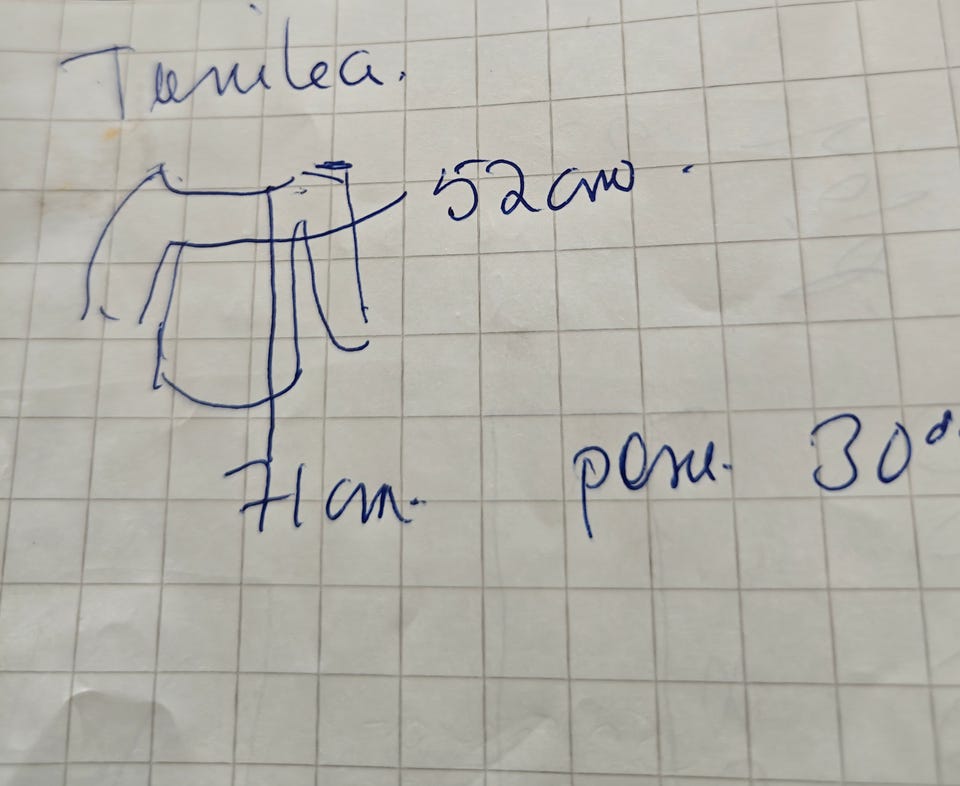 Tunika.
52 cm.
71 cm. pow. 30°